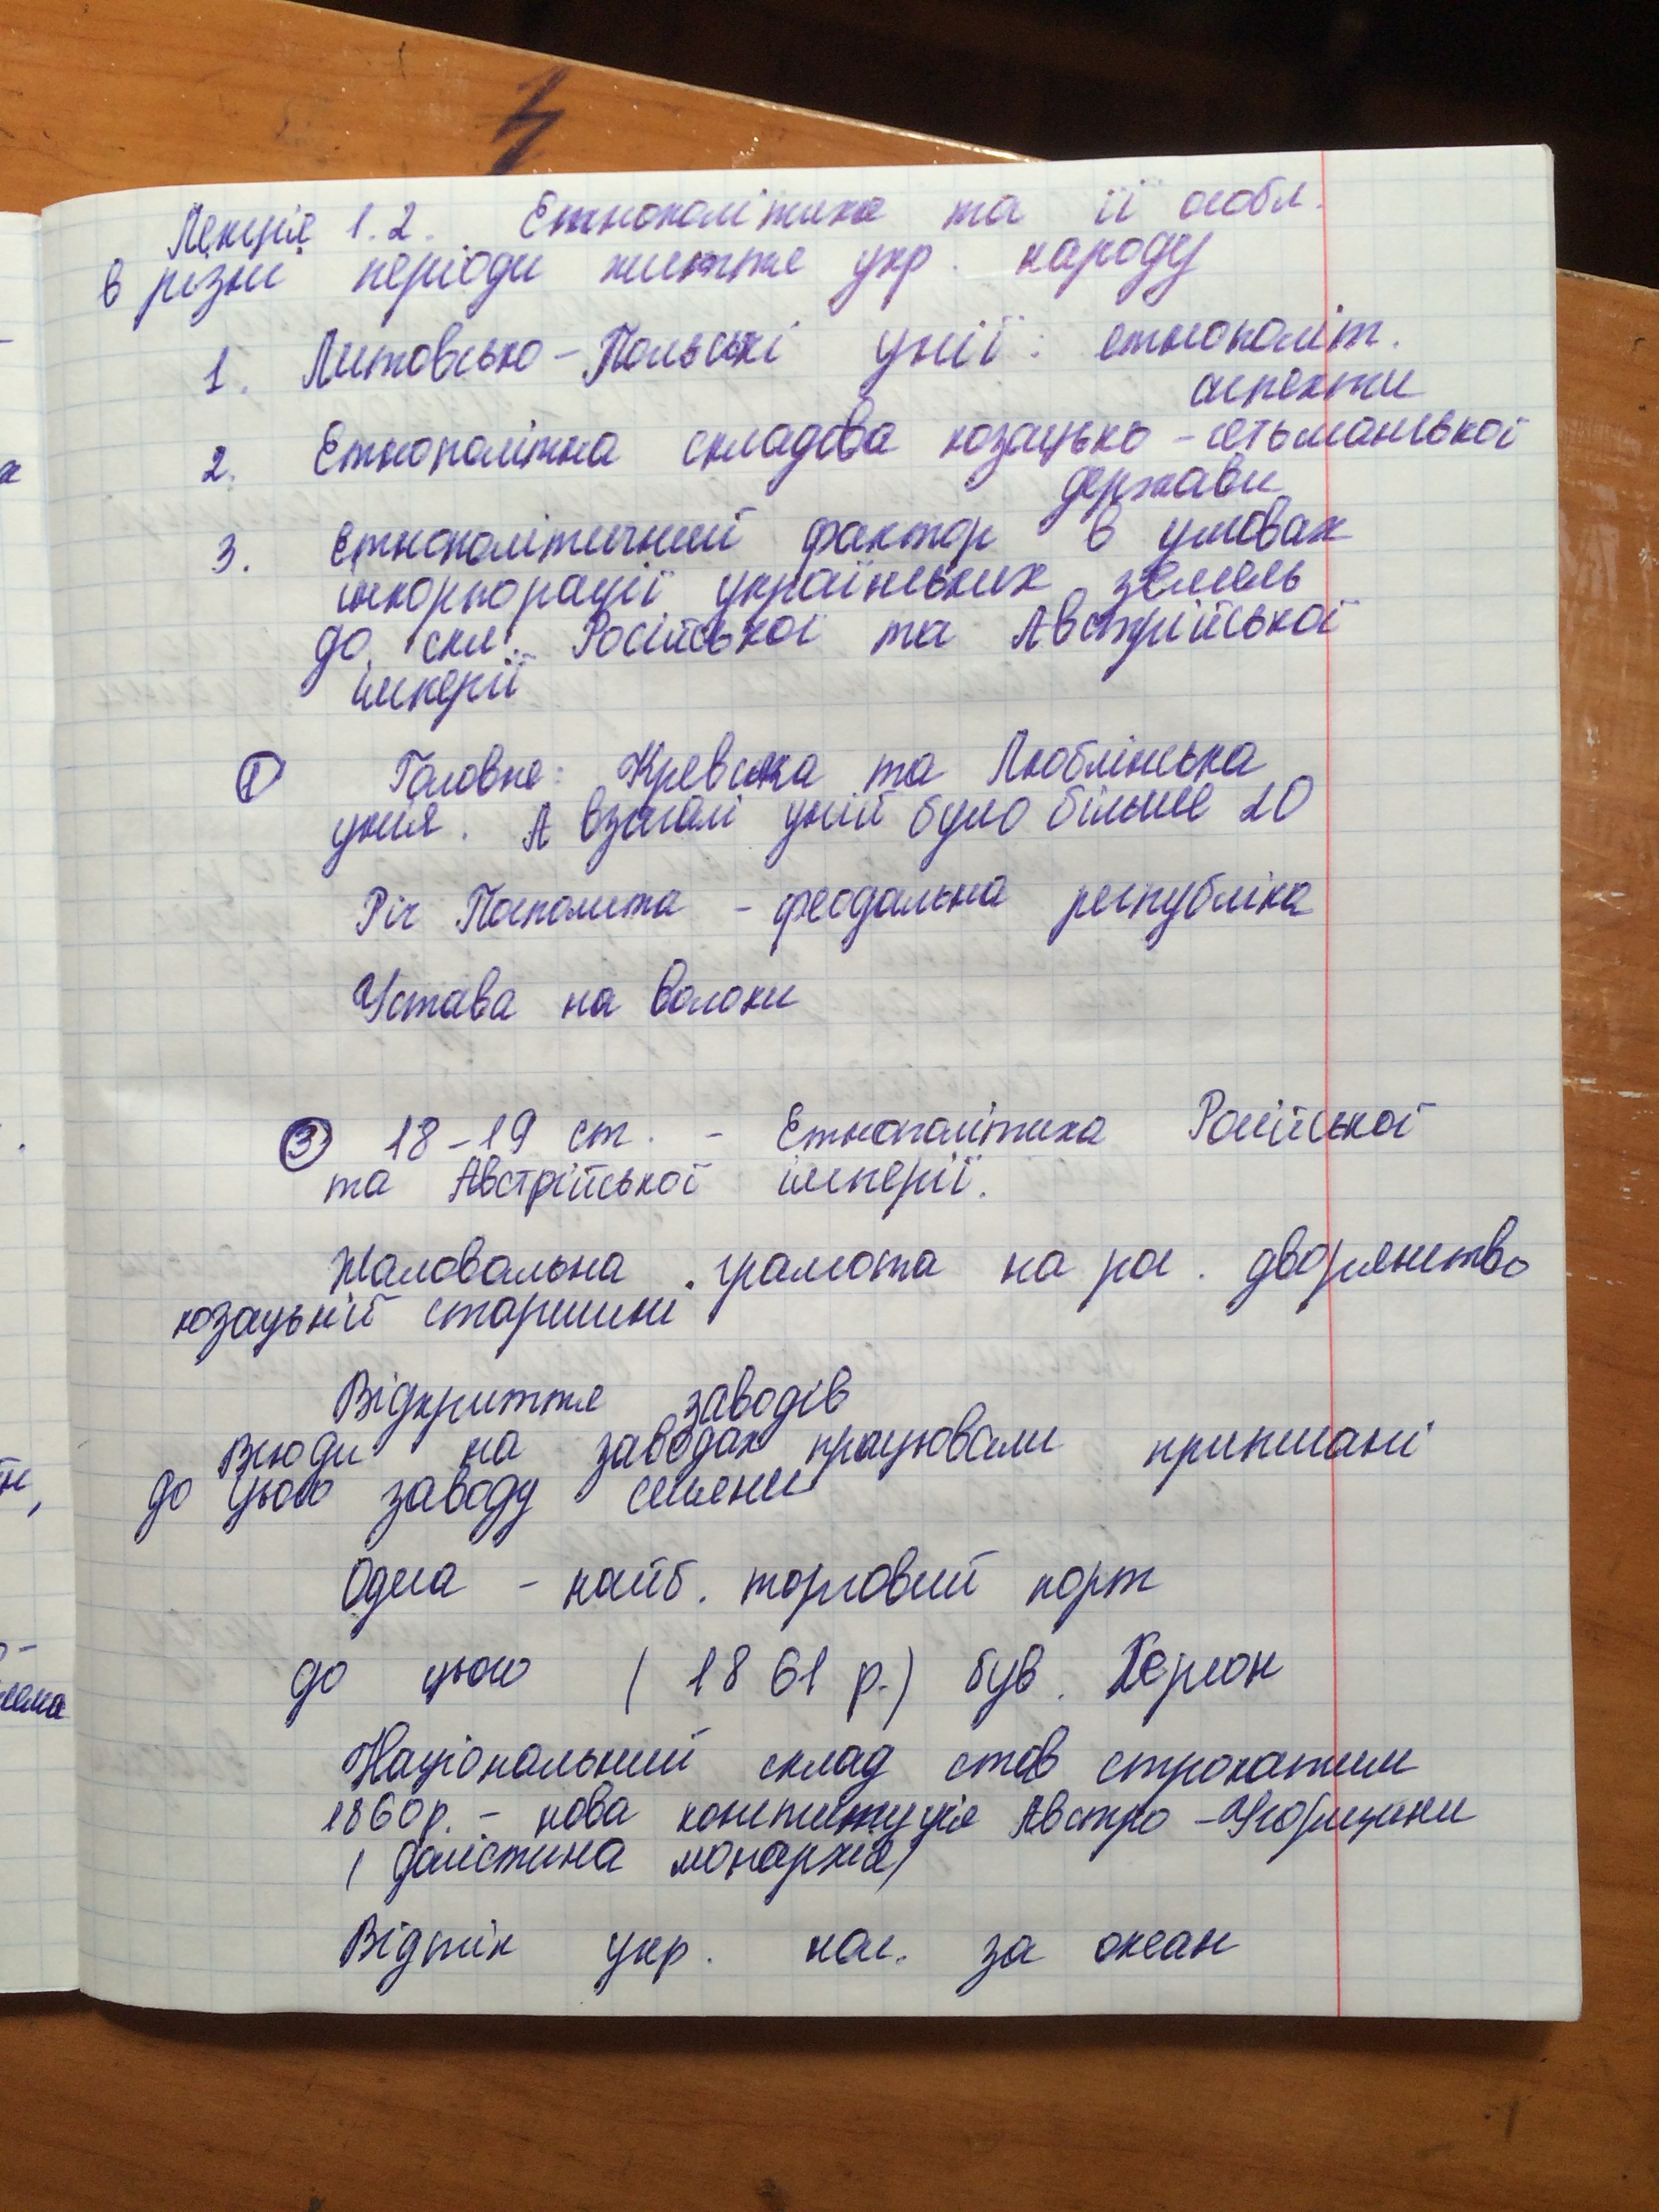 Лекція 1.2. Етнополітика та її особл.
в різні періоди життя укр. народу
1. Литовсько-Польські унії: етнополіт.
аспекти
2. Етнополітна складова козацько-гетьманської
держави
3. Етнополітичний фактор в умовах
інкорпорації українських земель
до скл. Російської та Австрійської
імперії
1 Головне: Кревська та Люблінська
унія. А взагалі уній було більше 20
Річ Посполита - феодальна республіка
Устава на волоки
3 18-19 ст. - Етнополітика Російської
та Австрійської імперії.
Жаловальна грамота на рос. дворянство
козацькій старшині
Відкриття заводів
люди на заводах працювали приписані
до цього заводу селяни
Одеса - найб. торговий порт
до цього (1861 р.) був. Херсон
Національний склад став строкатим
1860р. - нова конституція Австро-Угорщини
( монархія)
Відтік укр. нас. за океан